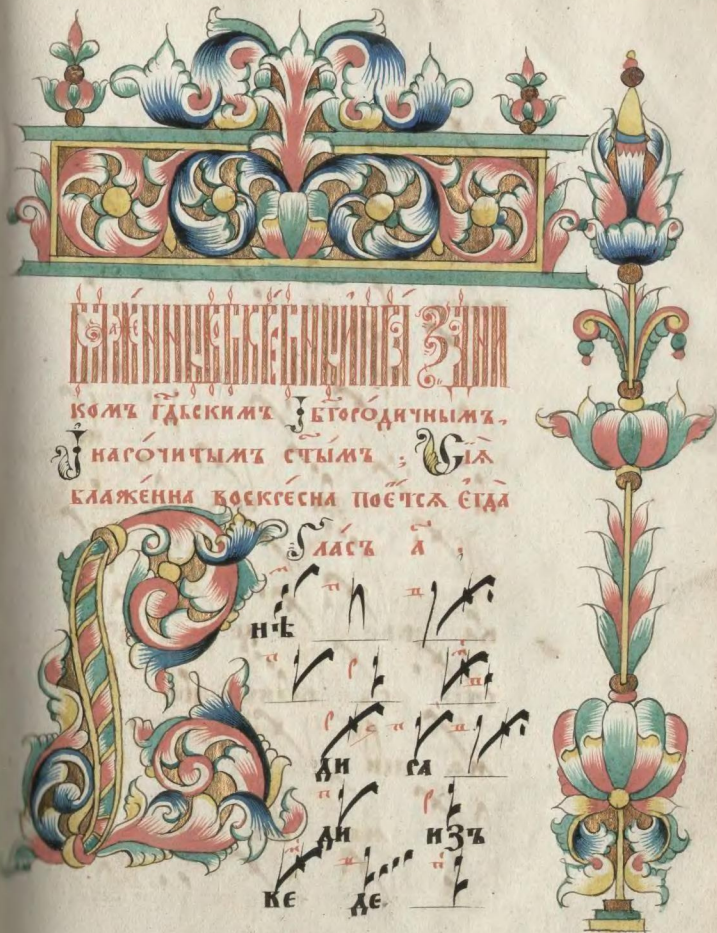 БЛАЖЕННА ВОСКРЕСНЫ ИПРАЗДНИ
комъ гд҃ьскимъ И҆бг҃оро́дичнымъ,
И҆наро́читымъ ст҃ы́мъ ; Сїѧ̀
блаже́нна воскре́сна пое́тсѧ є҆гда̀
Гла́съ а҃ ;
С нѣ
ди ра
ди изъ
ве де